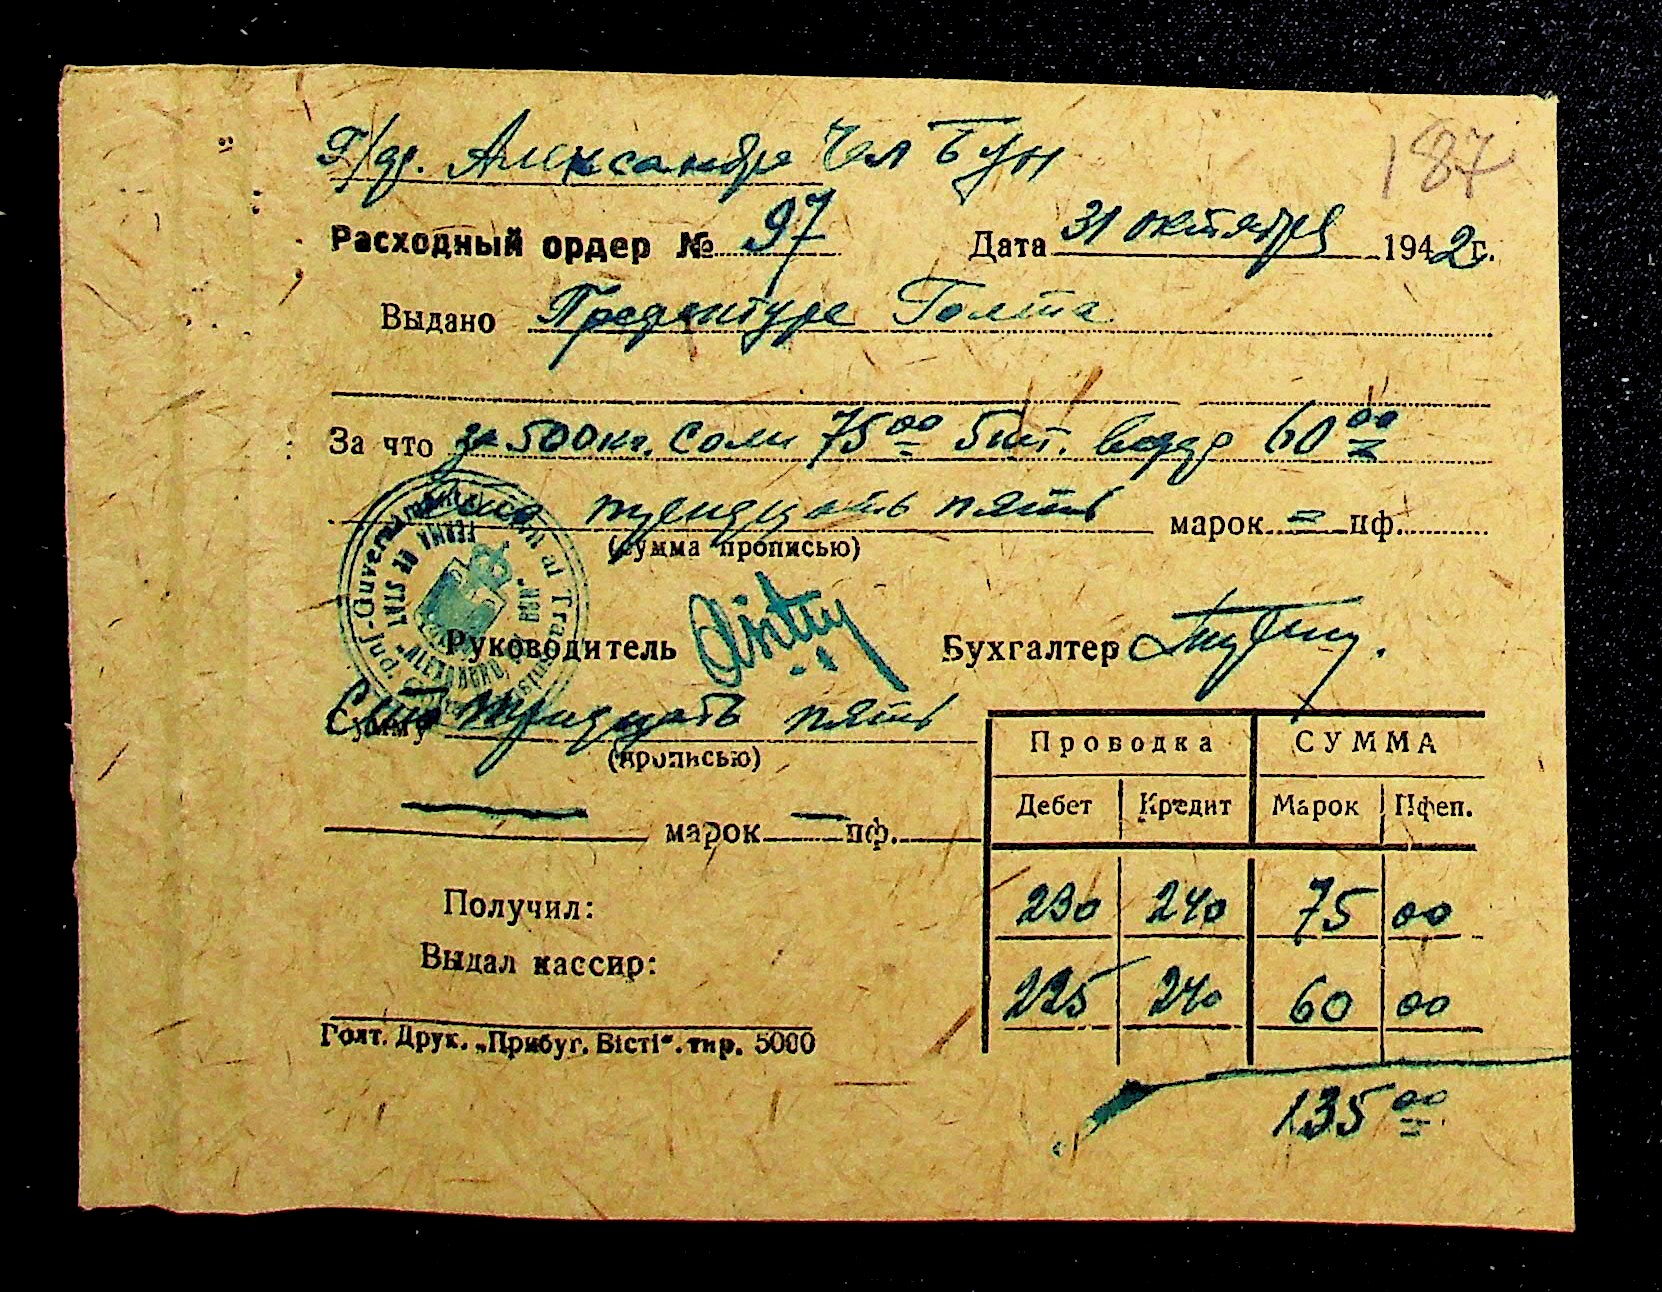 Г/др. Александру Чел Бун
187
Расходный ордер № 97 Дата 31 октября 1942 г.
Выдано Префектуре Голта
За что за 500 кг. Соли 75 00 5 шт. ведер 60 00
Сто тридцать пять марок = пф.
(сумма прописью)
Guvernământul al Trans
FERMA DE STAT
"ALEXANDRU CEL BUN"
Jud.
Руководитель Бухгалтер
Сумму Сто тридцать пять
(прописью)
— марок — пф.
Проводка СУММА
Дебет Кредит Марок Пфен.
230 240 75 00
225 240 60 00
135 00
Получил:
Выдал кассир:
Голт. Друк. „Прибуг. Вісті“. тир. 5000